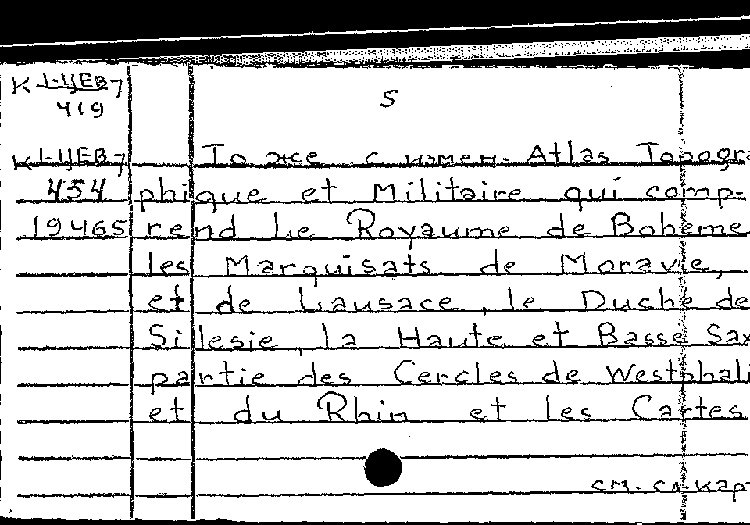 К 1-ЦЕВ 7
419
5
К 1-ЦЕВ 7 То же с измен. Atlas Topogra
454 phique et Militaire qui comp-
19465 rend Le Royaume de Boheme
les Marquisats de Moravie,
et de Lausace, le Duche de
Silesie, la Haute et Basse Sax
partie des Cercles de Westphali
et du Rhin et les Cartes
см. сл. кар